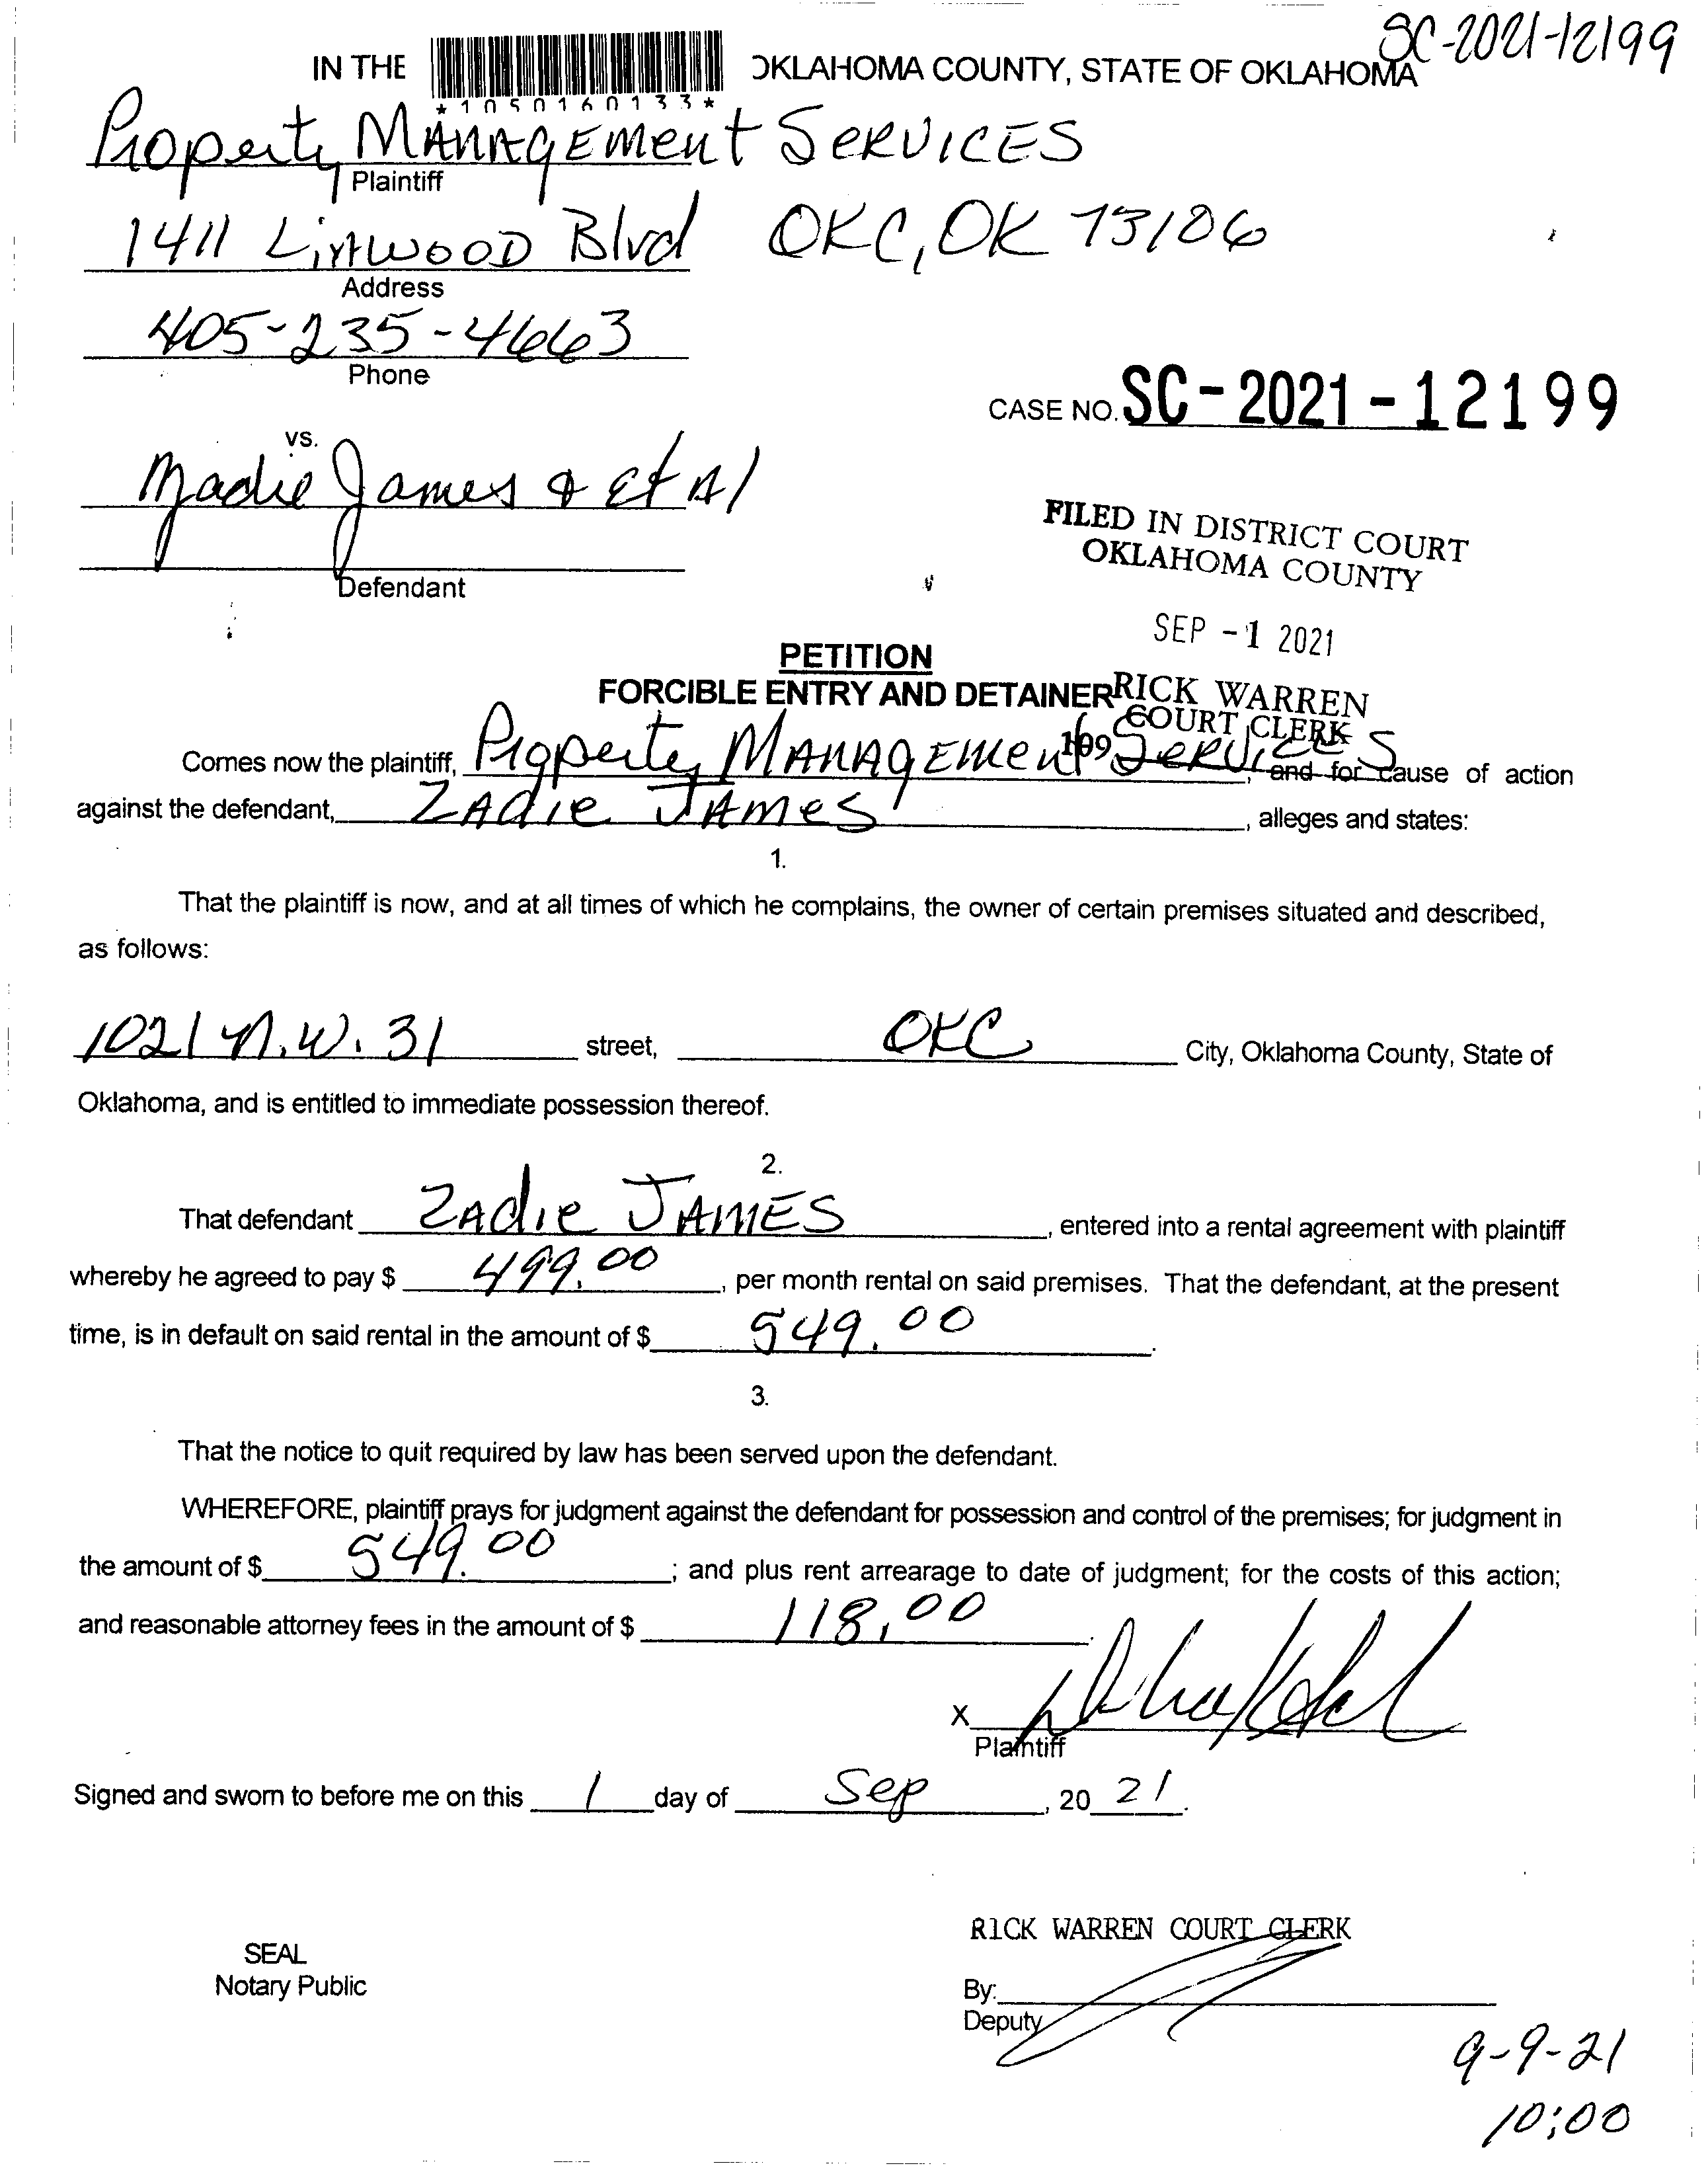 SC-2021-12199
IN THE OKLAHOMA COUNTY, STATE OF OKLAHOMA
*1050160133*
Property MANAgEMent SERVICES
Plaintiff
1411 LinWOOD Blvd OKC, OK 73106
Address
405-235-4663
Phone
CASE NO. SC-2021-12199
vs.
James & Et Al
Defendant
FILED IN DISTRICT COURT
OKLAHOMA COUNTY
SEP -1 2021
RICK WARREN
COURT CLERK
109
PETITION
FORCIBLE ENTRY AND DETAINER
Comes now the plaintiff, Property MANAgEMent SERVICES, and for cause of action
against the defendant, ZAdie JAMES, alleges and states:
1.
That the plaintiff is now, and at all times of which he complains, the owner of certain premises situated and described,
as follows:
1021 N.W. 31 street, OKC City, Oklahoma County, State of
Oklahoma, and is entitled to immediate possession thereof.
2.
That defendant ZAdie JAMES, entered into a rental agreement with plaintiff
whereby he agreed to pay $ 499.00, per month rental on said premises. That the defendant, at the present
time, is in default on said rental in the amount of $ 549.00.
3.
That the notice to quit required by law has been served upon the defendant.
WHEREFORE, plaintiff prays for judgment against the defendant for possession and control of the premises; for judgment in
the amount of $ 549.00; and plus rent arrearage to date of judgment; for the costs of this action;
and reasonable attorney fees in the amount of $ 118.00.
X
Plaintiff
Signed and sworn to before me on this 1 day of Sep, 20 21.
RICK WARREN COURT CLERK
SEAL
Notary Public
By:
Deputy
9-9-21
10:00